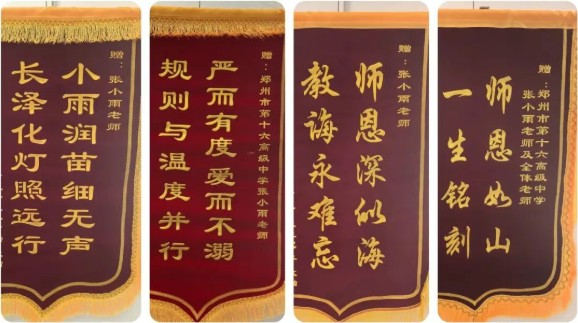 赠：张小雨老师
小雨润苗细无声
长泽化灯照远行
赠：郑州市第十六高级中学张小雨老师
严而有度爱而不溺
规则与温度并行
赠：张小雨老师
师恩深似海
教诲永难忘
赠：郑州市第十六高级中学
张小雨老师及全体老师
师恩如山
一生铭刻